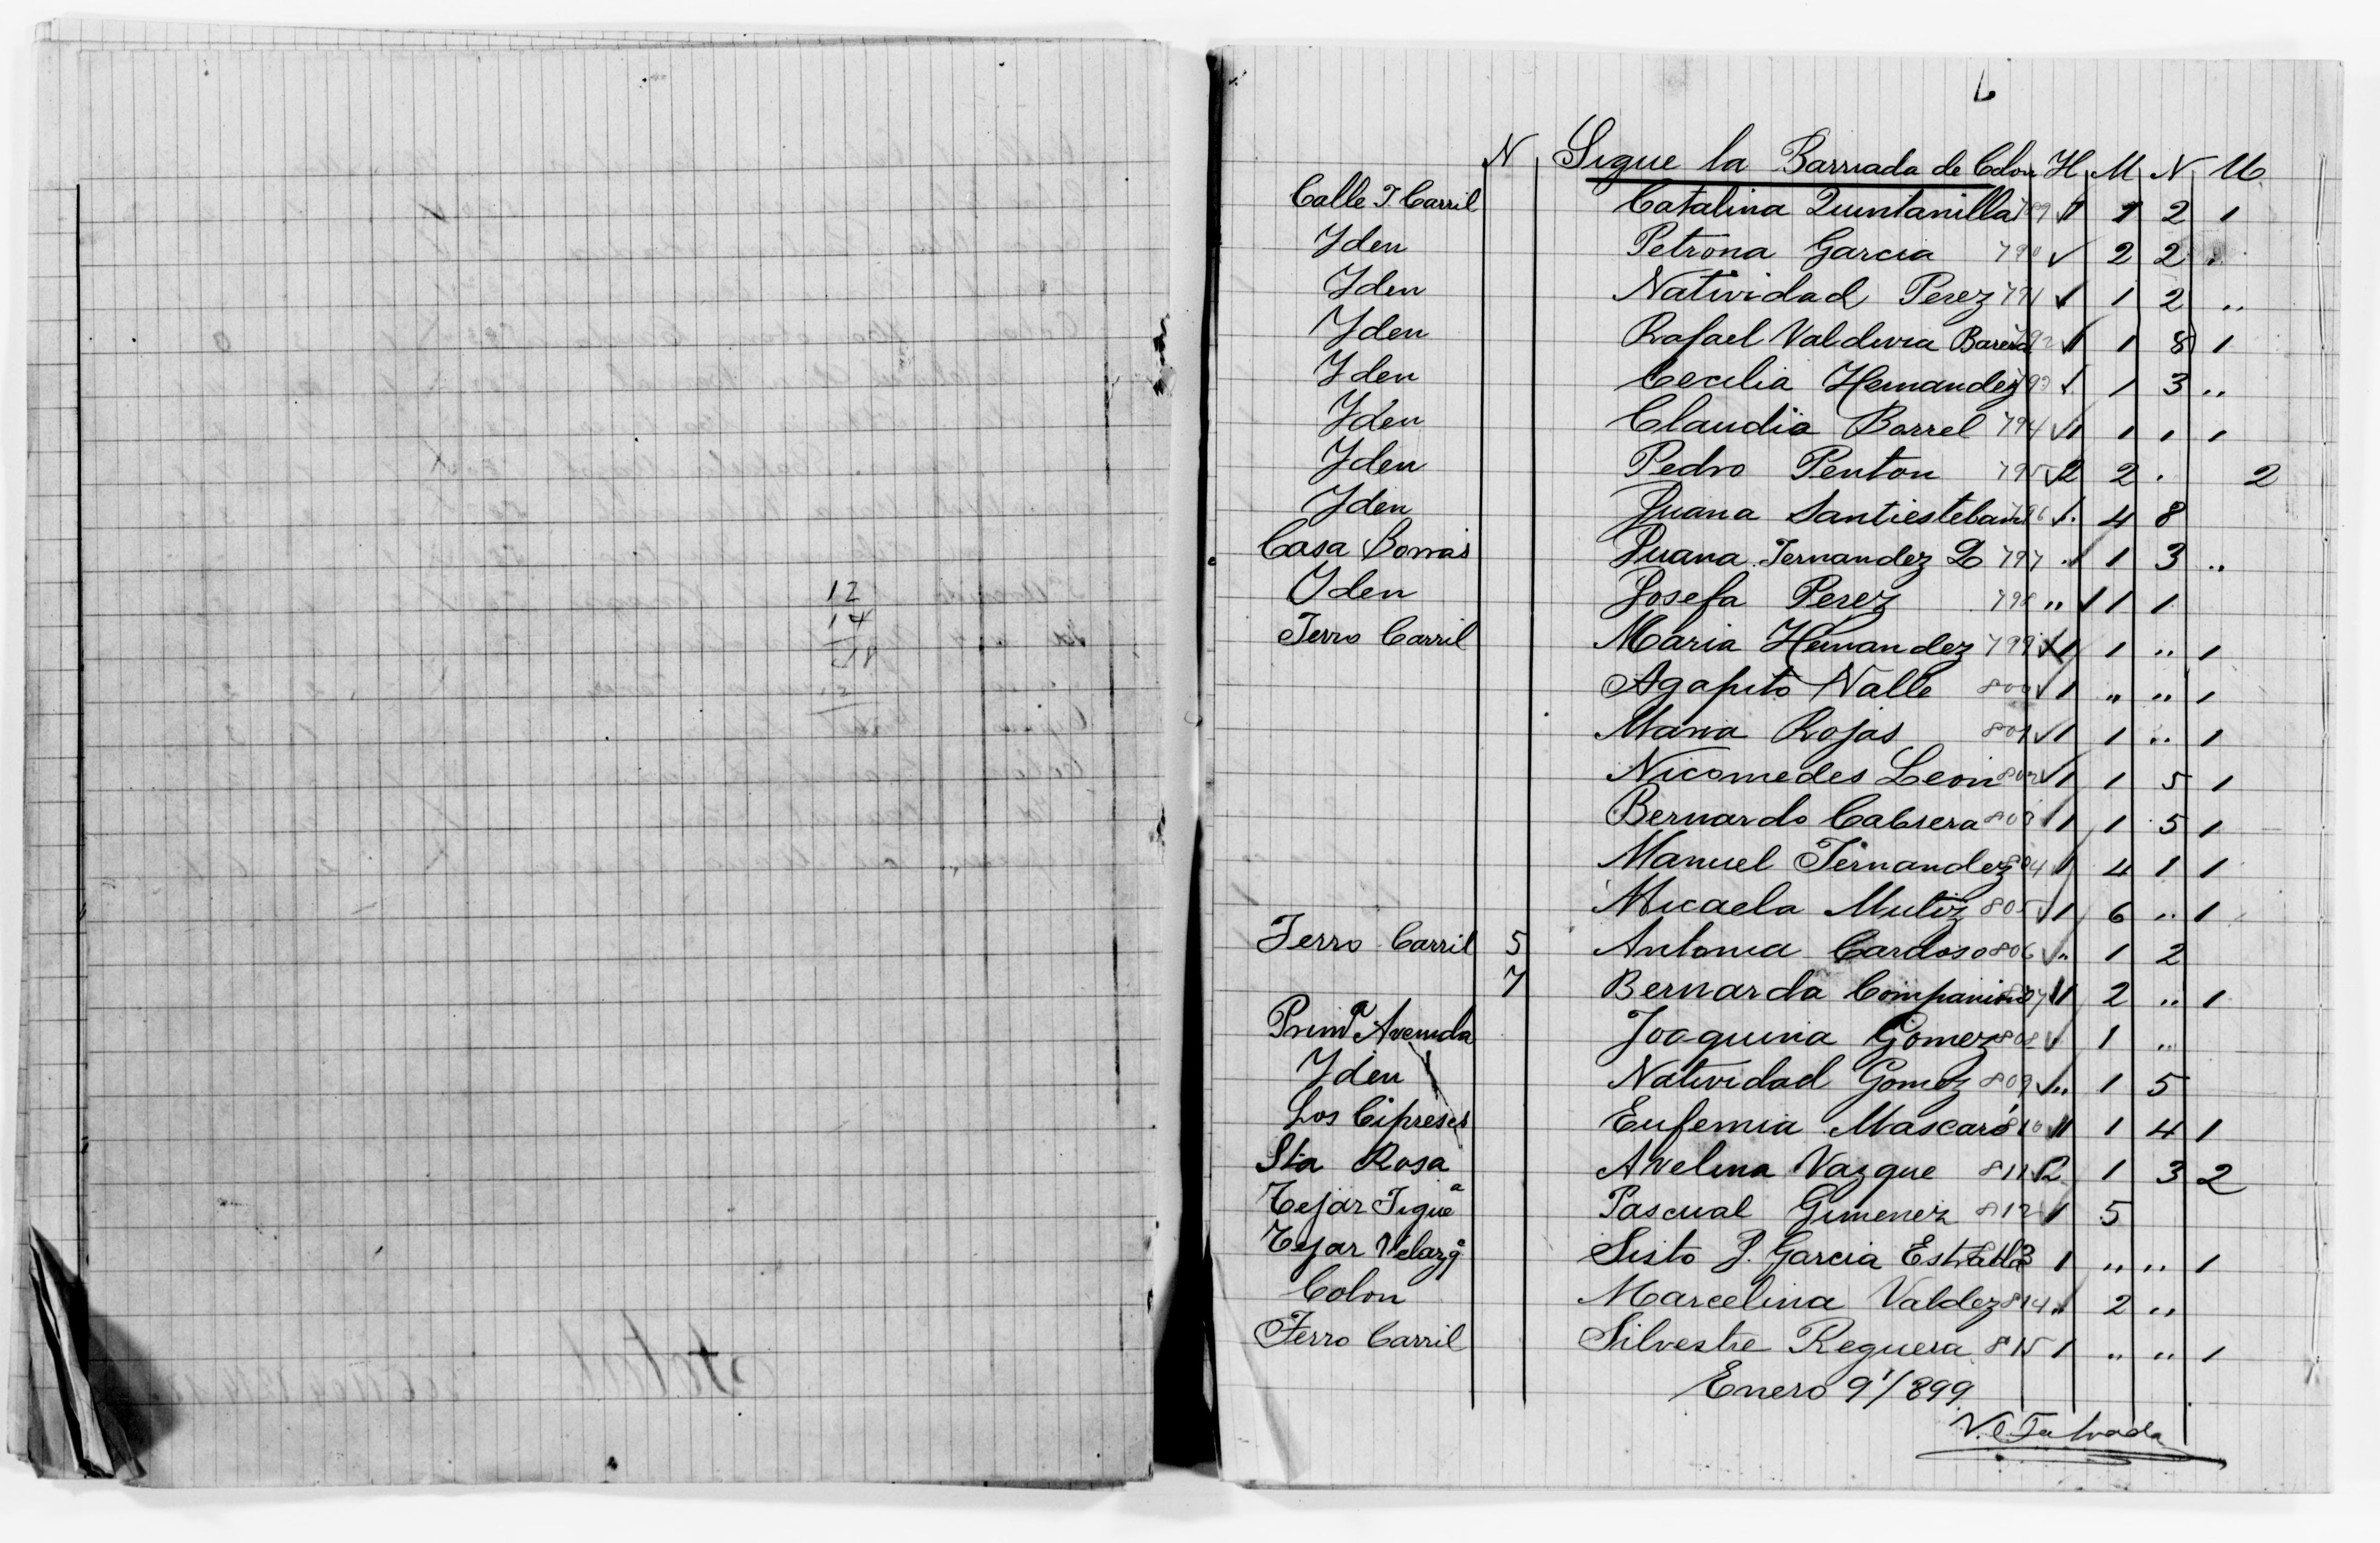 12
14
18
6
N Sigue la Barriada de Colon H M N M
Calle F. Carril Catalina Quintanilla 789 1 1 2 1
Yden Petrona Garcia 790 2 2 "
Yden Natividad Perez 791 1 1 2 "
Yden Rafael Valdivia Barera 792 1 1 8 1
Yden Cecilia Hernandez 793 1 3 "
Yden Claudia Borrel 794 1 1 1 1
Yden Pedro Penton 795 2 2 . 2
Yden Juana Santiesteban 796 . 4 8
Casa Borras Juana Fernandez L 797 " 1 3 "
Yden Josefa Perez 798 " 1 1
Ferro Carril Maria Hernandez 799 1 1 " 1
Agapito Valle 800 1 " " 1
Maria Rojas 801 1 1 " 1
Nicomedes Leon 802 1 1 5 1
Bernardo Cabrera 803 1 1 5 1
Manuel Fernandez 804 1 4 1 1
Micaela Mutiz 805 1 6 " 1
Ferro Carril 5 Antonia Cardoso 806 " 1 2
7 Bernarda Companioni 807 1 2 " 1
Primª Avenida Joaquina Gomez 808 1 "
Yden Natividad Gomez 809 " 1 5
Los Cipreses Eufemia Mascaró 810 1 1 4 1
Sta Rosa Avelina Vazque 811 2 1 3 2
Tejar Figueª Pascual Gimenez 812 1 5
Tejar Velazqº Sisto P. Garcia Estrada 813 1 " " 1
Colon Marcelina Valdez 814 " 2 "
Ferro Carril Silvestre Reguera 815 1 " " 1
Enero 9/899